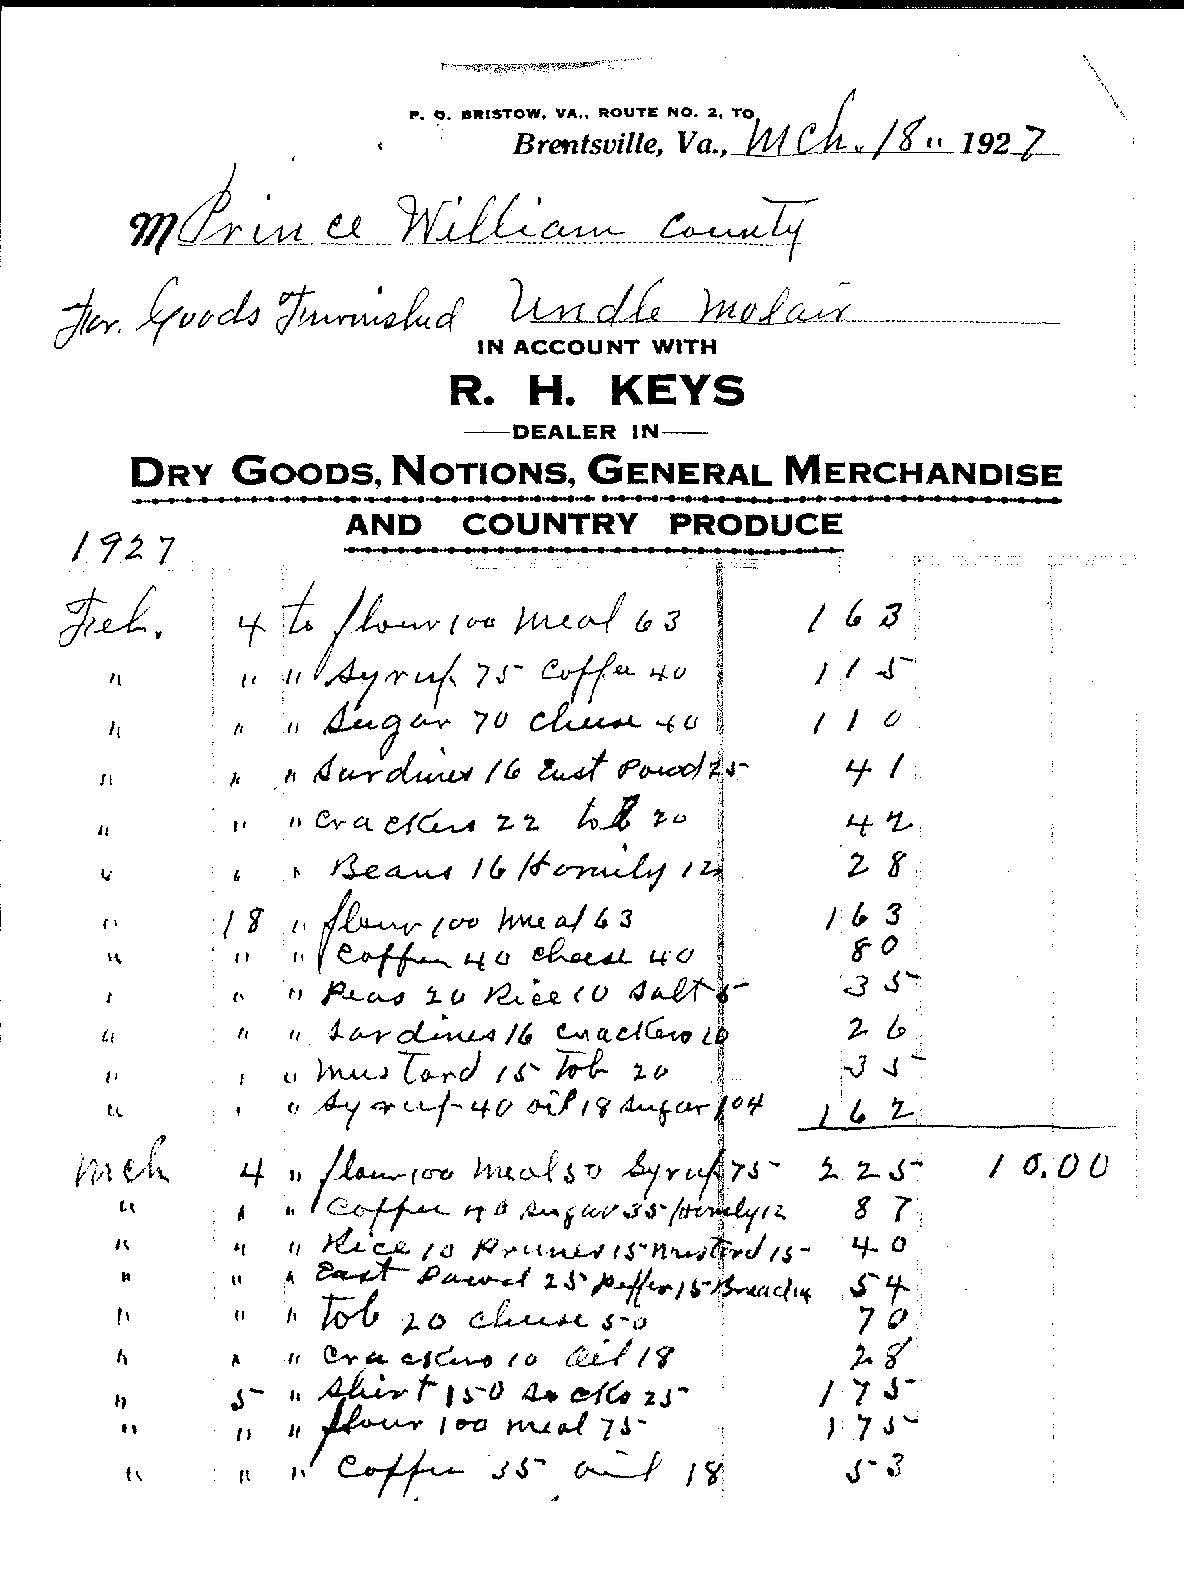 P. O. BRISTOW, VA., ROUTE NO. 2, TO
Brentsville, Va., Mch. 18" 1927
M Prince William County
For. Goods Furnished Undle Molair
IN ACCOUNT WITH
R. H. KEYS
DEALER IN
DRY GOODS, NOTIONS, GENERAL MERCHANDISE
AND COUNTRY PRODUCE
1927
Feb. 4 to flour 100 Meal 63 163
" " " Syrup 75 Coffee 40 115
" " " Sugar 70 cheese 40 110
" " " Sardines 16 East Powd 25 41
" " " Crackers 22 tob 20 42
" " " Beans 16 Homily 12 28
" 18 " flour 100 meal 63 163
" " " Coffee 40 cheese 40 80
" " " Peas 20 Rice 10 Salt 5 35
" " " Sardines 16 crackers 10 26
" " " Mustard 15 Tob 20 35
" " " Syrup 40 oil 18 sugar 104 162
Mch 4 " flour 100 Meal 50 Syrup 75 225 10.00
" " " Coffee 40 Sugar 35 Homily 12 87
" " " Rice 10 Prunes 15 Mustard 15 40
" " " East Powd 25 peffer 15 Bread 54
" " " Tob 20 cheese 50 70
" " " Crackers 10 Oil 18 28
" 5 " Shirt 150 Socks 25 175
" " " flour 100 meal 75 175
" " " Coffee 35 oil 18 53